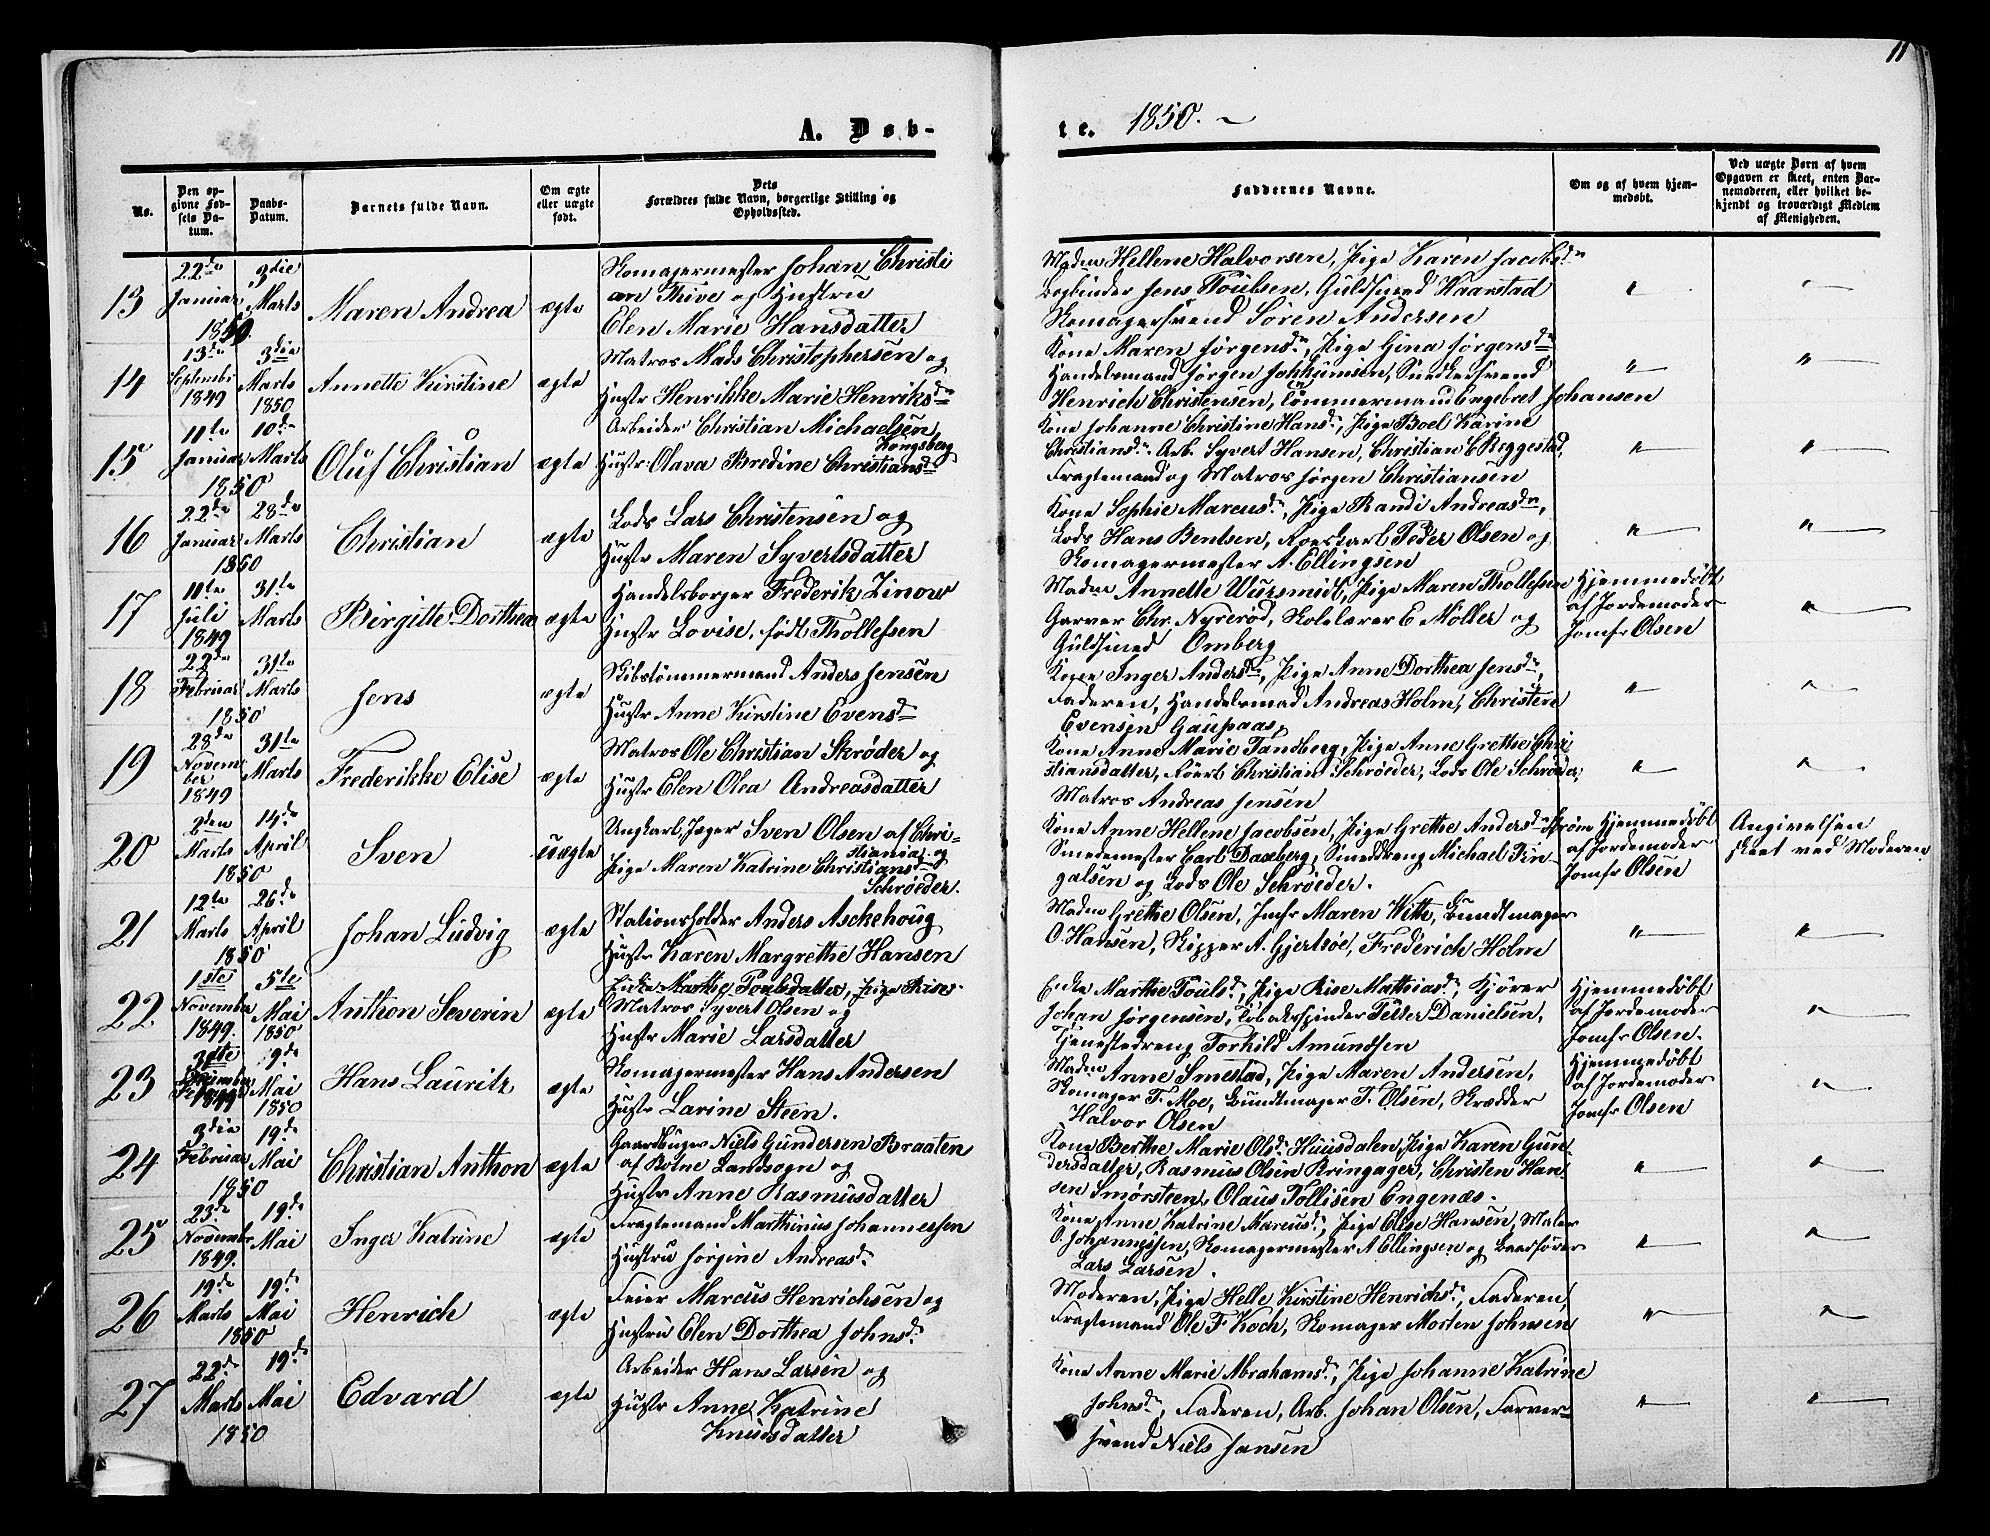 11
A. Døb-
te. 1850.
No.
Den op-
givne Fød-
sels Da-
tum.
Daabs-
Datum.
Barnets fulde Navn.
Om ægte
eller uægte
født.
Dets
Forældres fulde Navn, borgerlige Stilling og
Opholdssted.
Faddernes Navne.
Om og af hvem hjem-
medøbt.
Ved uægte Børn af hvem
Opgaven er skeet, enten Bar-
nemoderen, eller hvilket be-
kjendt og troværdigt Medlem
af Menigheden.
13
22de
Januar
1850.
3die
Marts
Maren Andrea
ægte
Skomagermester Johan Christi
an Thive og Hustru
Elen Marie Hansdatter
Madm Hellene Halvorsen, Pige Karen Jacobsdr
Bogbinder Jens Poulsen, Guldsmed Haarstad
Skomagersvend Søren Andersen
"
"
14
13de
Septembr
1849
3die
Marts
1850
Annette Kirstine
ægte
Matros Mads Christophersen og
Hustr Henrikke Marie Henriksdr
Kone Maren Jørgensdr, Pige Gina Jørgensdr
Handelsmand Jørgen Jokkumsen, Snedkersvend
Henrich Christensen, Tømmermand Engebret Johansen
"
"
15
11te
Januar
1850
10de
Marts
Oluf Christian
ægte
Arbeider Christian Michaelsen,
Kongsberg
Hustr Olava Bredine Christiansdr
Kone Johanne Christine Hansdr, Pige Boel Karine
Christiansdr Arb. Syvert Hansen, Christian C Reggestad,
Fragtemand og Matros Jørgen Christiansen
"
"
16
22de
Januar
1850
28de
Marts
Christian
ægte
Lods Lars Christensen og
Hustr Maren Syvertsdatter
Kone Sophie Marcusdr, Pige Randi Andreasdr,
Lods Hans Bentsen, Roerskarl Peder Olsen og
Skomagermester A. Ellingsen
"
"
17
11te
Juli
1849
31te
Marts
Birgitte Dorthea
ægte
Handelsborger Frederik Zinow
Hustr Lovise, født Thollefsen
Madm Annette Wurmsidt, Pige Maren Thollefsen
Garver Chr. Nyrerød, Skolelærer E Møller og
Guldsmed Omberg
Hjemmedøbt
af Jordemoder
Jomfr Olsen
"
18
22de
Februar
1850
31te
Marts
Jens
ægte
Skibstømmermand Anders Jensen
Hustr Anne Kirstine Evensdr
Kone Inger Andersdr, Pige Anne Dorthea Jensdr,
Faderen, Handelsmad Andreas Holm, Christen
Evensen Gaupaas,
"
"
19
28de
Novem-
ber
1849
31te
Marts
Frederikke Elise
ægte
Matros Ole Christian Skrøder og
Hustr Elen Olea Andreasdatter
Kone Anne Marie Tandberg, Pige Anne Grethe Chri
stiansdatter, Røerk Christian Schrøeder, Lods Ole Schrøder,
Matros Andreas Jensen
"
"
20
2den
Marts
1850
14de
April
Sven
uægte
Ungkarl, Jæger Sven Olsen af Chri-
stiania og
Pige Maren Katrine Christiansdr
Schrøeder.
Kone Anne Hellene Jacobsen, Pige Grethe Andersdr Strøm
Smedemester Carl Daxberg, Smeddreng Michael In-
galsen og Lods Ole Schrøeder.
Hjemmedøbt
af Jordemoder
Jomfr Olsen
Angivelsen
skeet ved Moderen
21
12te
Marts
1850
26de
April
Johan Ludvig
ægte
Stationsholder Anders Askehoug
Hustr Karen Margrethe Hansen
Madm Grethe Olsen, Jmfr Maren With, Bundtmager
O. Hansen, Skipper A. Gjertsøe, Frederich Holm
"
"
22
1ste
November
1849.
5te
Mai
1850
Anthon Severin
ægte
Enke Marthe Poulsdatter, Pige Rise
Matros Syvert Olsen og
Hustr Marie Larsdatter
Enke Marthe Poulsdr, Pige Rise Mathiasdr, Kjører
Johan Jørgensen, Tobakspinder Petter Danielsen,
Tjenestedreng Torkild Amundsen
Hjemmedøbt
af Jordemoder
Jomfr Olsen.
"
23
31te
1849
9de
Mai
1850
Hans Lauritz
ægte
Skomagermester Hans Andersen
Hustr Larine Steen.
Madm Anne Smestad, Pige Maren Andersen,
Skomager F. Moe, Bundtmager F. Olsen, Skrædder
Halvor Olsen
Hjemmedøbt
af Jordemoder
Jomfr Olsen
"
24
3die
Februar
1850
19de
Mai
Christian Anthon
ægte
Gaardbruger Niels Gundersen Braaten
af Botne Landsogn og
Hustr Anne Rasmusdatter
Kone Berthe Marie Olsdr Huusdalen, Pige Karen Gun-
dersdatter, Rasmus Olsen Bringager, Christen Han-
sen Smørsteen, Olaus Tollisen Engenæs.
"
"
25
23de
Novembr
1849.
19de
Mai
Inger Katrine
ægte
Fragtemand Marthinus Johannessen
Hustru Jørgine Andreasdr
Kone Anne Katrine Marcusdr, Pige Elise Hansen, Maler
O. Johannesen, Skomagermester A Ellingsen og Baadfører
Lars Larsen.
"
"
26
19de
Marts
1850
19de
Mai
Henrich
ægte
Feier Marcus Henrichsen og
Hustru Elen Dorthea Johnsdr
Moderen, Pige Helle Kirstine Henrichsdr, Faderen,
Fragtemand Ole F Koch, Skomager Morten Johnsen
"
"
27
22de
Marts
1850
19de
Mai
Edvard
ægte
Arbeider Hans Larsen og
Hustr Anne Katrine
Knudsdatter
Kone Anne Marie Abrahamsdr, Pige Johanne Katrine
Johnsdr, Faderen, Arb. Johan Olsen, Farver-
svend Niels Jansen
"
"